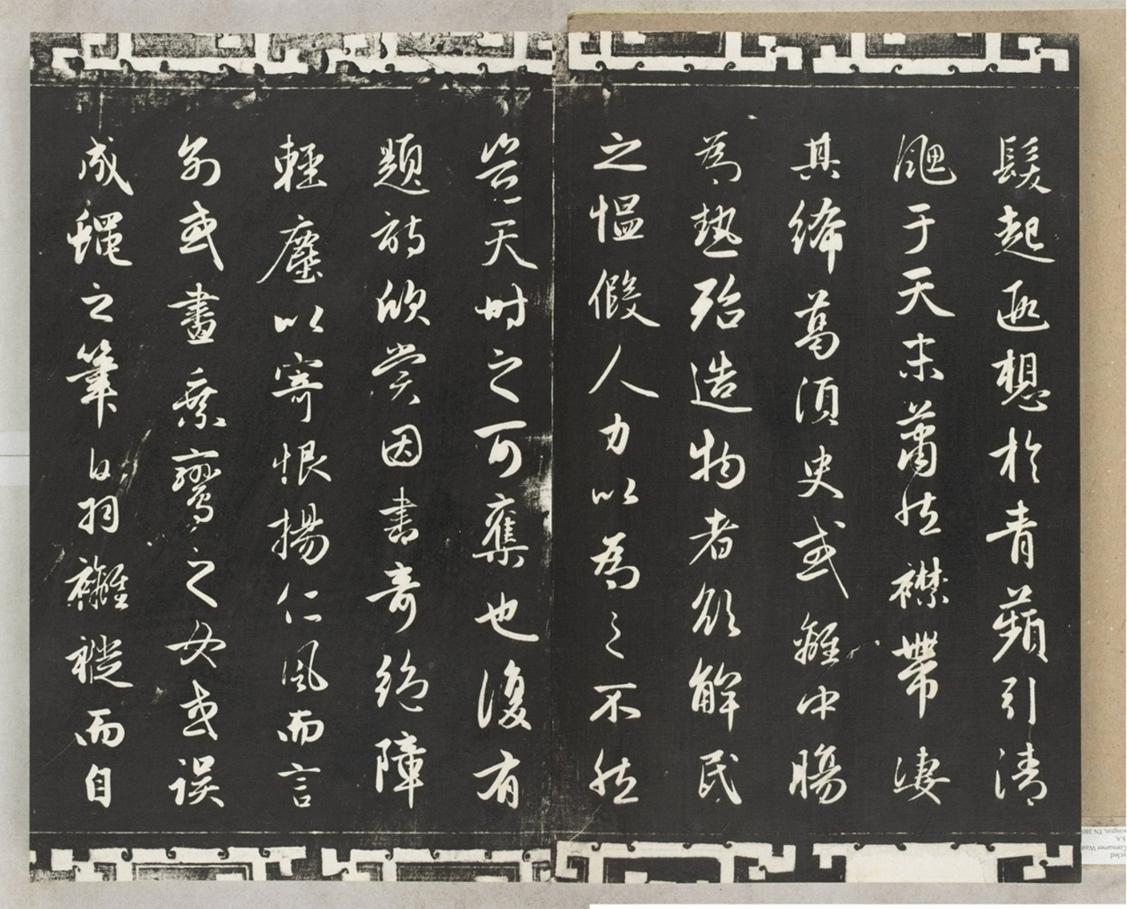 髮起遐想於青蘋引清
颸于天末蕭然襟帶凄
其絺葛須臾或離中腸
為熱殆造物者欲解民
之慍假人力以為之不然
豈天時之可奪也復有
題詩欣賞因書奇絕障
輕塵以寄恨揚仁風而言
別或畫乘鸞之女或誤
成蠅之筆白羽襹褷而自